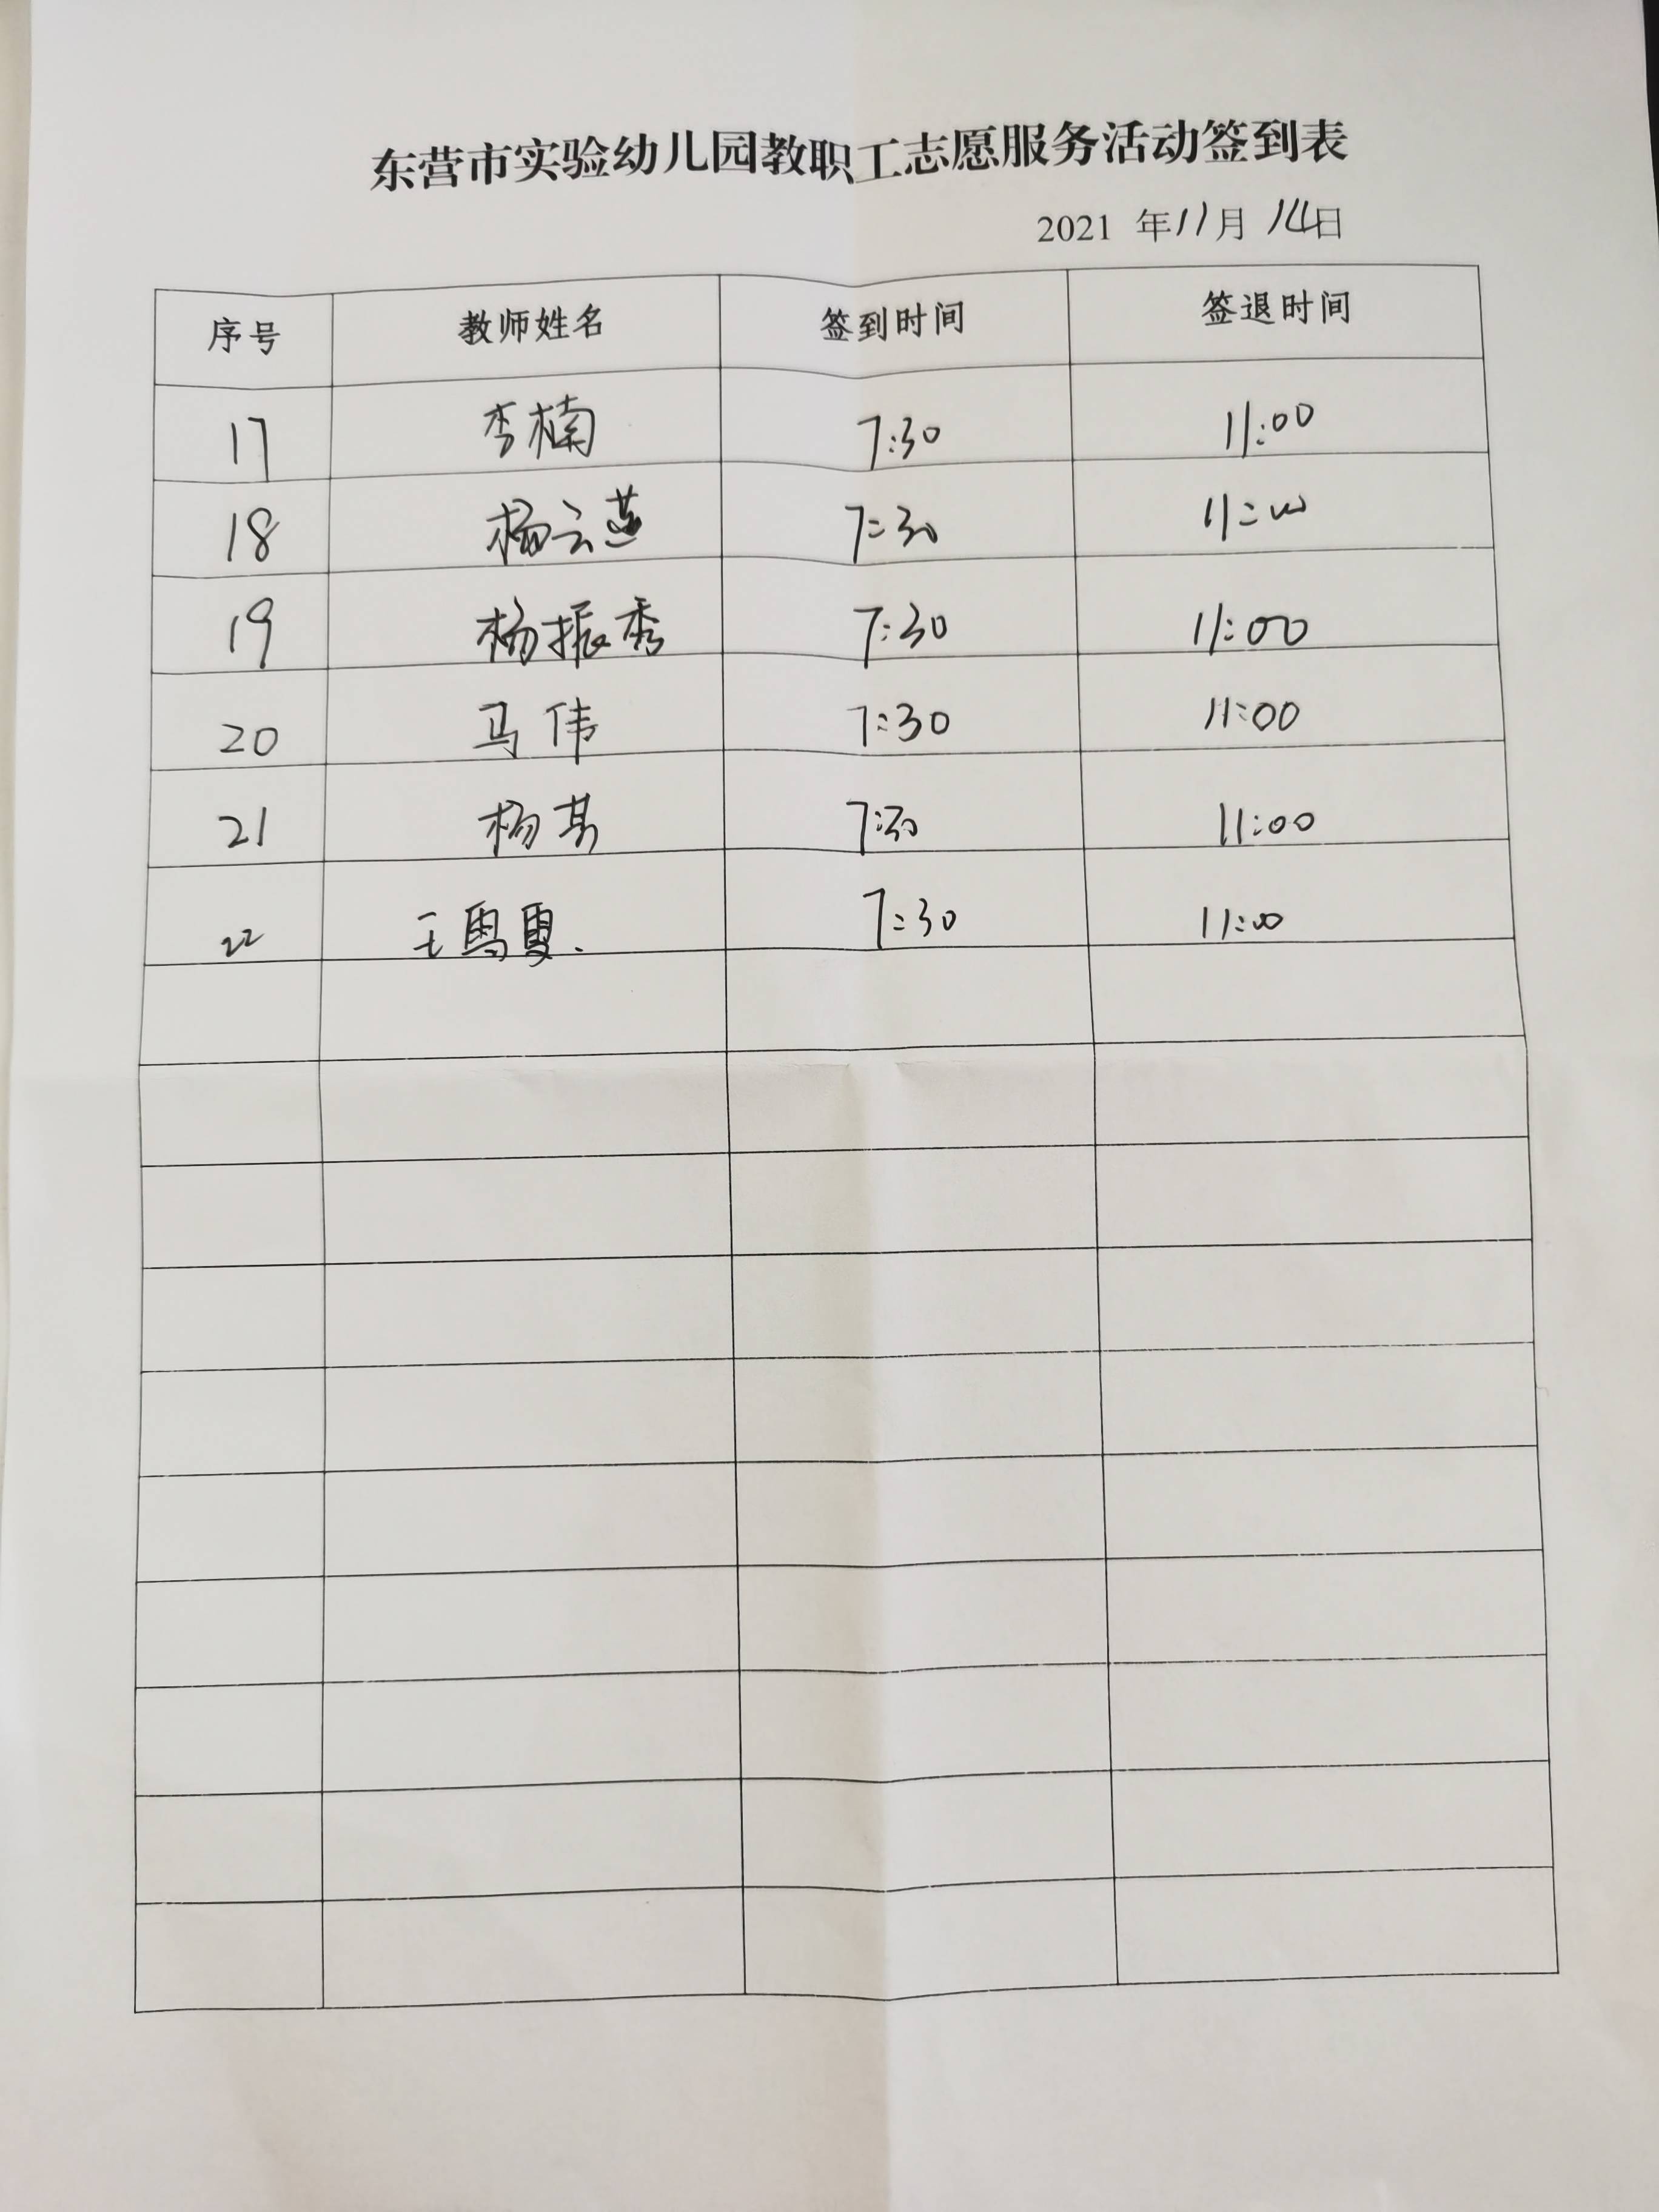 东营市实验幼儿园教职工志愿服务活动签到表
2021 年11月14日
序号 教师姓名 签到时间 签退时间
17 李楠 7:30 11:00
18 杨云莲 7:30 11:00
19 杨振秀 7:30 11:00
20 马伟 7:30 11:00
21 杨 7:30 11:00
22 王 7:30 11:00